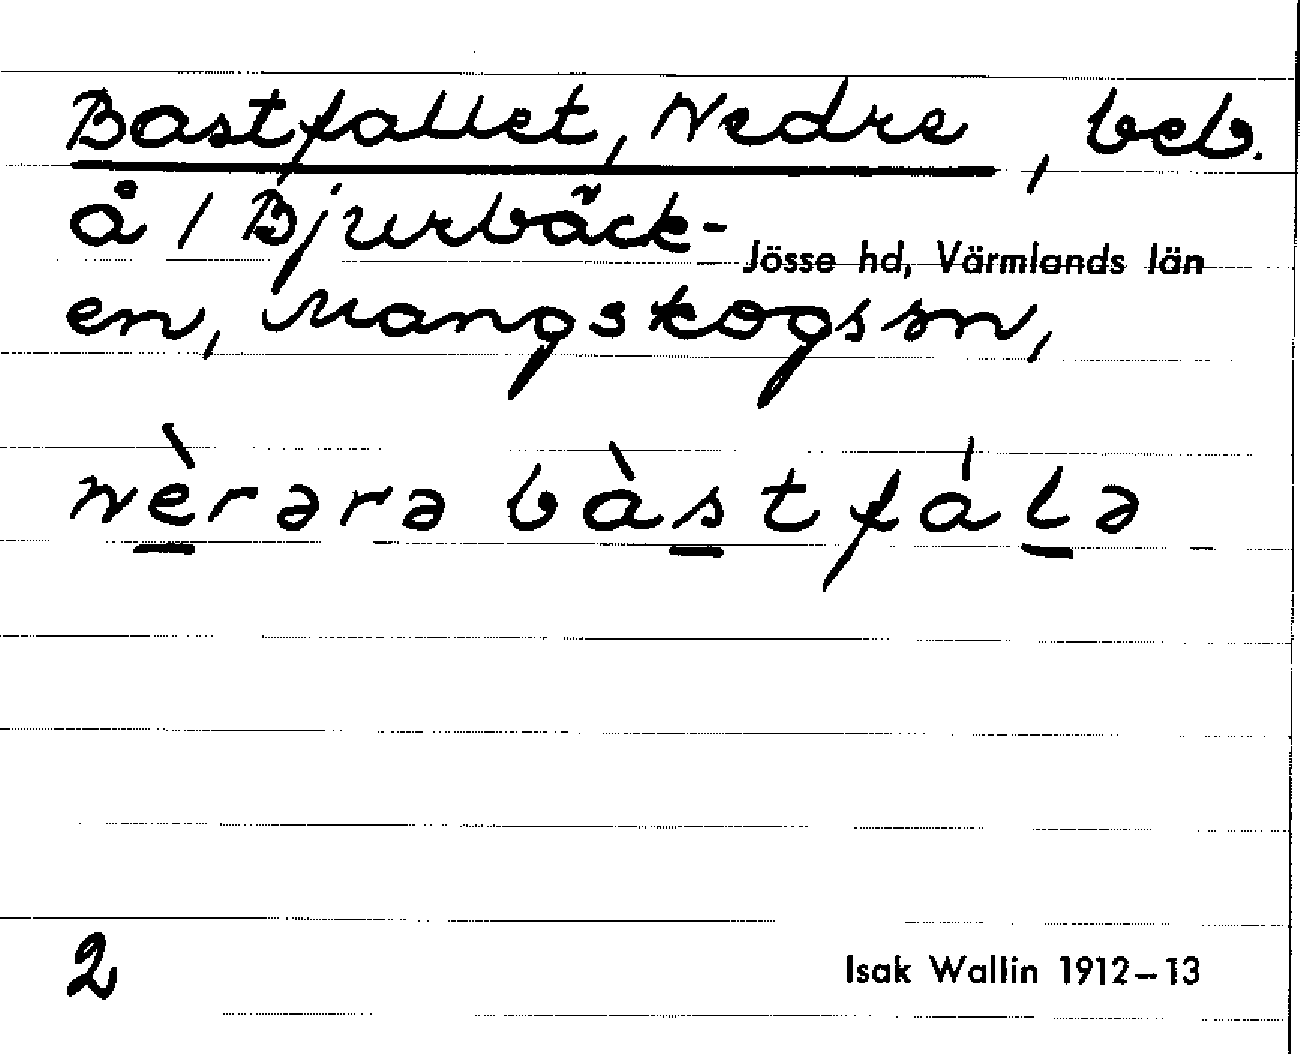 Bastfallet, Nedre, beb.
å 1 Bjurbäck-
Jösse hd, Värmlands län
en, Mangskogs sn,
nèrərə bàstfálə
2
Isak Wallin 1912–13